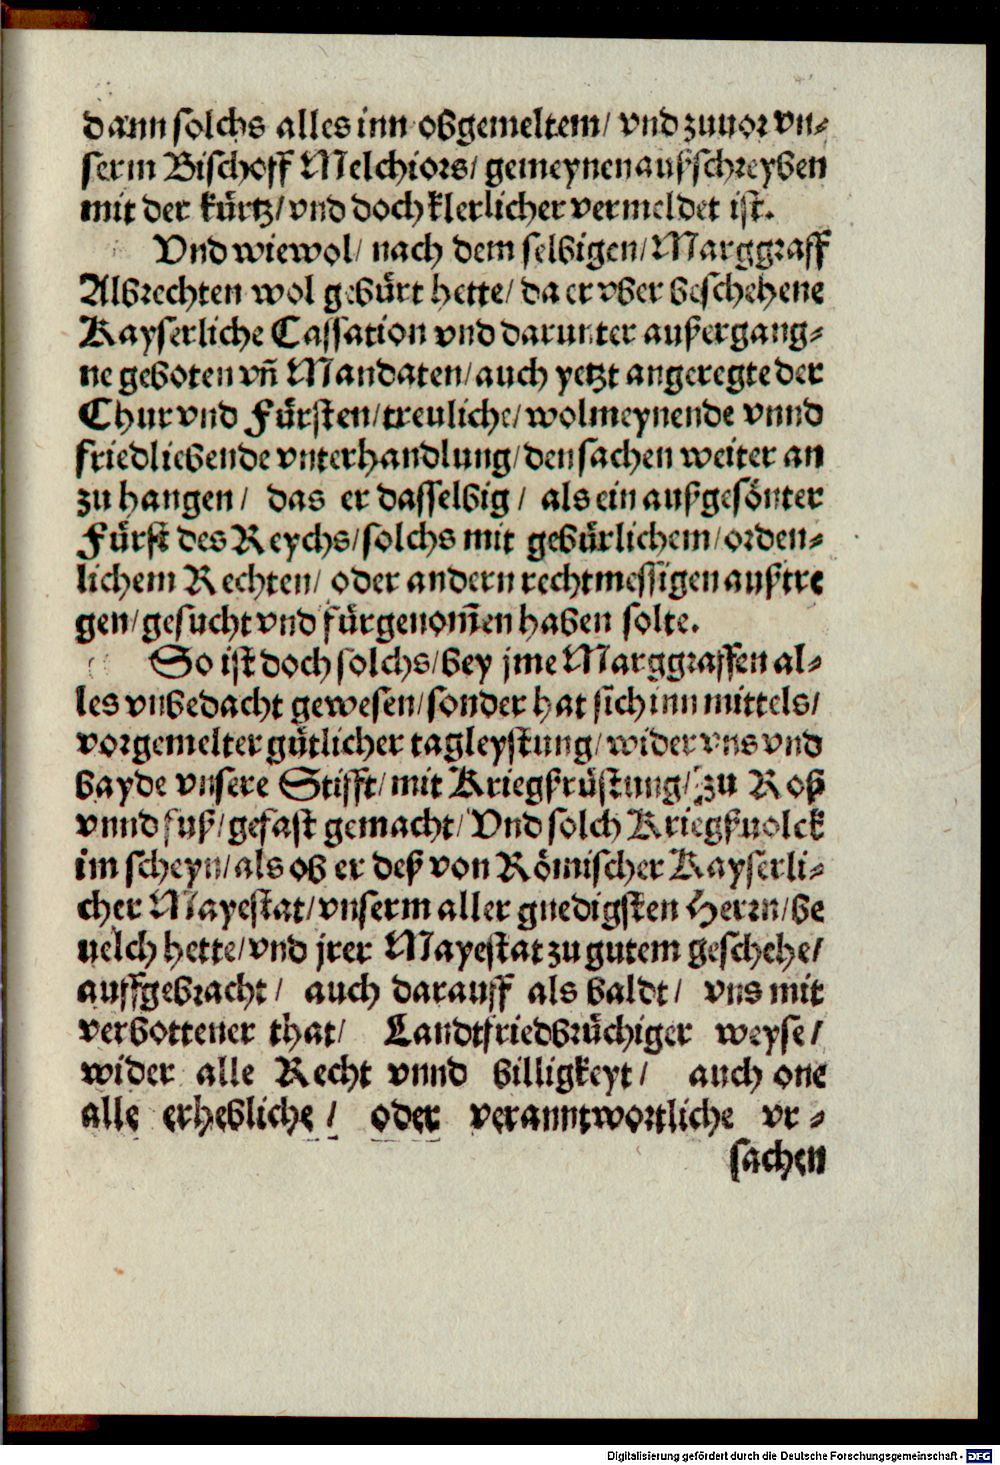 dann solchs alles inn obgemeltem/ vnd zuuor vn-
serm Bischoff Melchiors/ gemeynen außschreyben
mit der kürtz/ vnd doch klerlicher vermeldet ist.
Vnd wiewol/ nach dem selbigen/ Marggraff
Albrechten wol gebürt hette/ da er vber beschehene
Kayserliche Cassation vnd darunter außergang-
ne geboten vñ Mandaten/ auch yetzt angeregte der
Chur vnd Fürsten/ treuliche/ wolmeynende vnnd
friedliebende vnterhandlung/ den sachen weiter an
zu hangen/ das er dasselbig/ als ein außgesönter
Fürst des Reychs/ solchs mit gebürlichem/ orden-
lichem Rechten/ oder andern rechtmessigen außtre
gen/ gesucht vnd fürgenom̅en haben solte.
So ist doch solchs/ bey jme Marggraffen al-
les vnbedacht gewesen/ sonder hat sich inn mittels/
vorgemelter gütlicher tagleystung/ wider vns vnd
bayde vnsere Stifft/ mit Kriegßrüstung/ zu Roß
vnnd fuß/ gefast gemacht/ Vnd solch Kriegßuolck
im scheyn/ als ob er deß von Römischer Kayserli-
cher Mayestat/ vnserm aller gnedigsten Herrn/ be
uelch hette/ vnd jrer Mayestat zu gutem geschehe/
auffgebracht/ auch darauff als baldt/ vns mit
verbottener that/ Landtfriedbrüchiger weyse/
wider alle Recht vnnd billigkeyt/ auch one
alle erhebliche/ oder veranntwortliche vr-
sachen
Digitalisierung gefördert durch die Deutsche Forschungsgemeinschaft - DFG